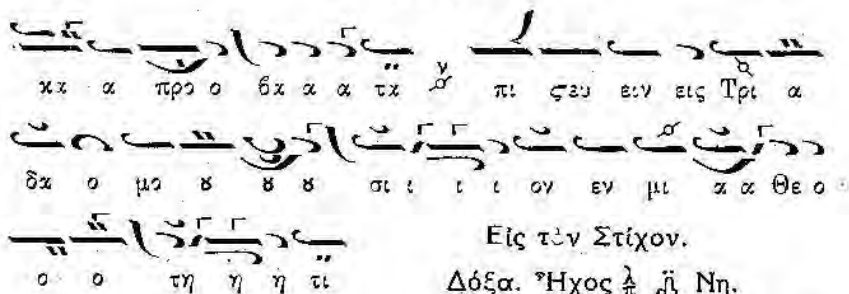 κα α προ ο βα α α τα πι ϛευ ειν εις Τρι α
δα ο μο ȣ ȣ ȣ σι ι ι ι ον εν μι α α Θε ο
ο ο τη η η τι
Εἰς τὸν Στίχον.
Δόξα. Ἦχος Νη.